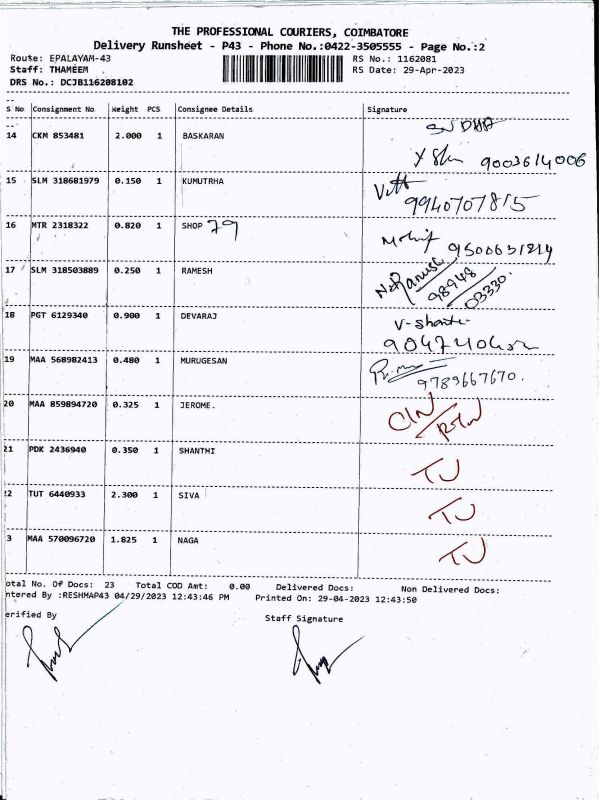 THE PROFESSIONAL COURIERS, COIMBATORE
Delivery Runsheet - P43 - Phone No.:0422-3505555 - Page No.:2
Route: EPALAYAM-43 RS No.: 1162081
Staff: THAMEEM RS Date: 29-Apr-2023
DRS No.: DCJB116208102
S No Consignment No Weight PCS Consignee Details Signature
14 CKM 853481 2.000 1 BASKARAN
9003614006
15 SLM 318681979 0.150 1 KUMUTRHA
9940707815
16 MTR 2318322 0.820 1 SHOP 79
17 SLM 318503889 0.250 1 RAMESH
98948
03330.
18 PGT 6129340 0.900 1 DEVARAJ
V-Shanti
19 MAA 568982413 0.480 1 MURUGESAN
9789667670.
20 MAA 859894720 0.325 1 JEROME.
21 PDK 2436940 0.350 1 SHANTHI
TU
22 TUT 6440933 2.300 1 SIVA
TU
3 MAA 570096720 1.825 1 NAGA
TU
otal No. Of Docs: 23 Total COD Amt: 0.00 Delivered Docs: Non Delivered Docs:
ntered By :RESHMAP43 04/29/2023 12:43:46 PM Printed On: 29-04-2023 12:43:50
erified By Staff Signature